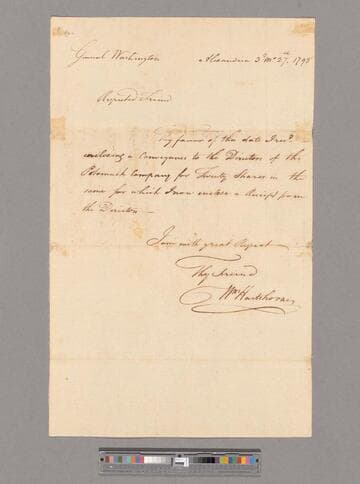 General Washington Alexandria 3d Mo 27th. 1795
Respected Friend
Thy favour of this date I recd.
enclosing a Conveyance to the Directors of the
Potomack Company for Twenty Shares in the
same for which I now enclose a Receipt from
the Directors —
I am with great Respect
Thy Friend
Wm Hartshorne